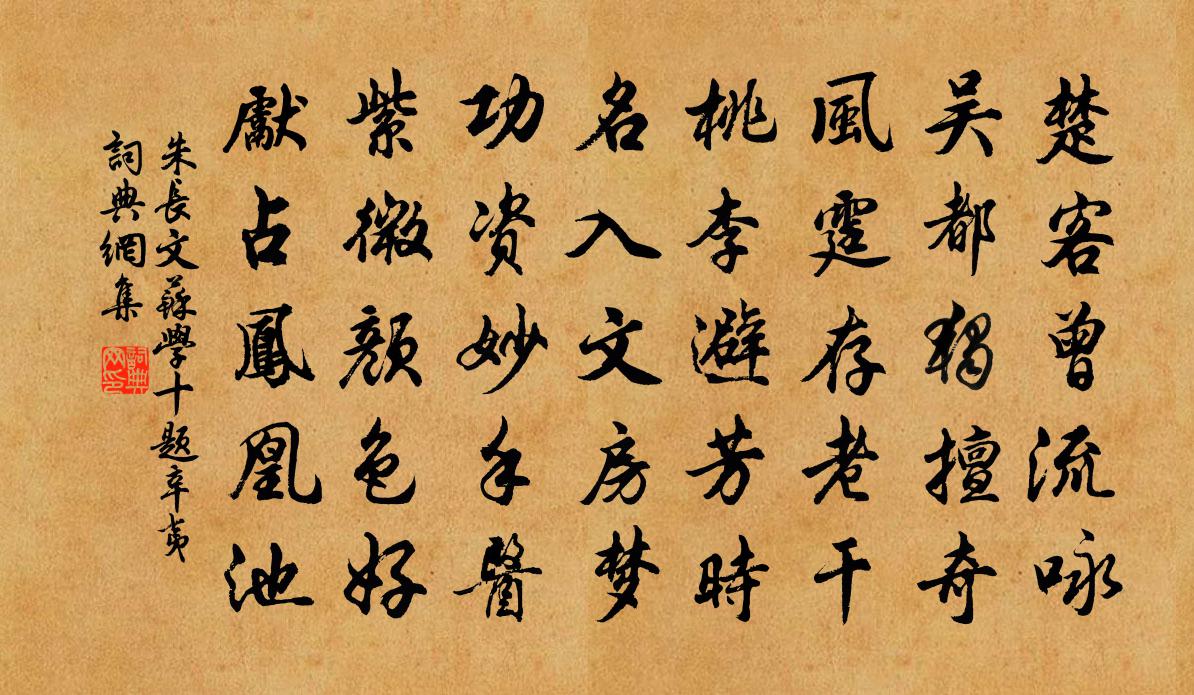 楚客曾流咏
吴都独擅奇
風霆存老干
桃李避芳時
名入文房梦
功资妙手醫
紫微颜色好
獻占鳳凰池
朱長文蘇學十题辛夷
詞典網集
詞典網印